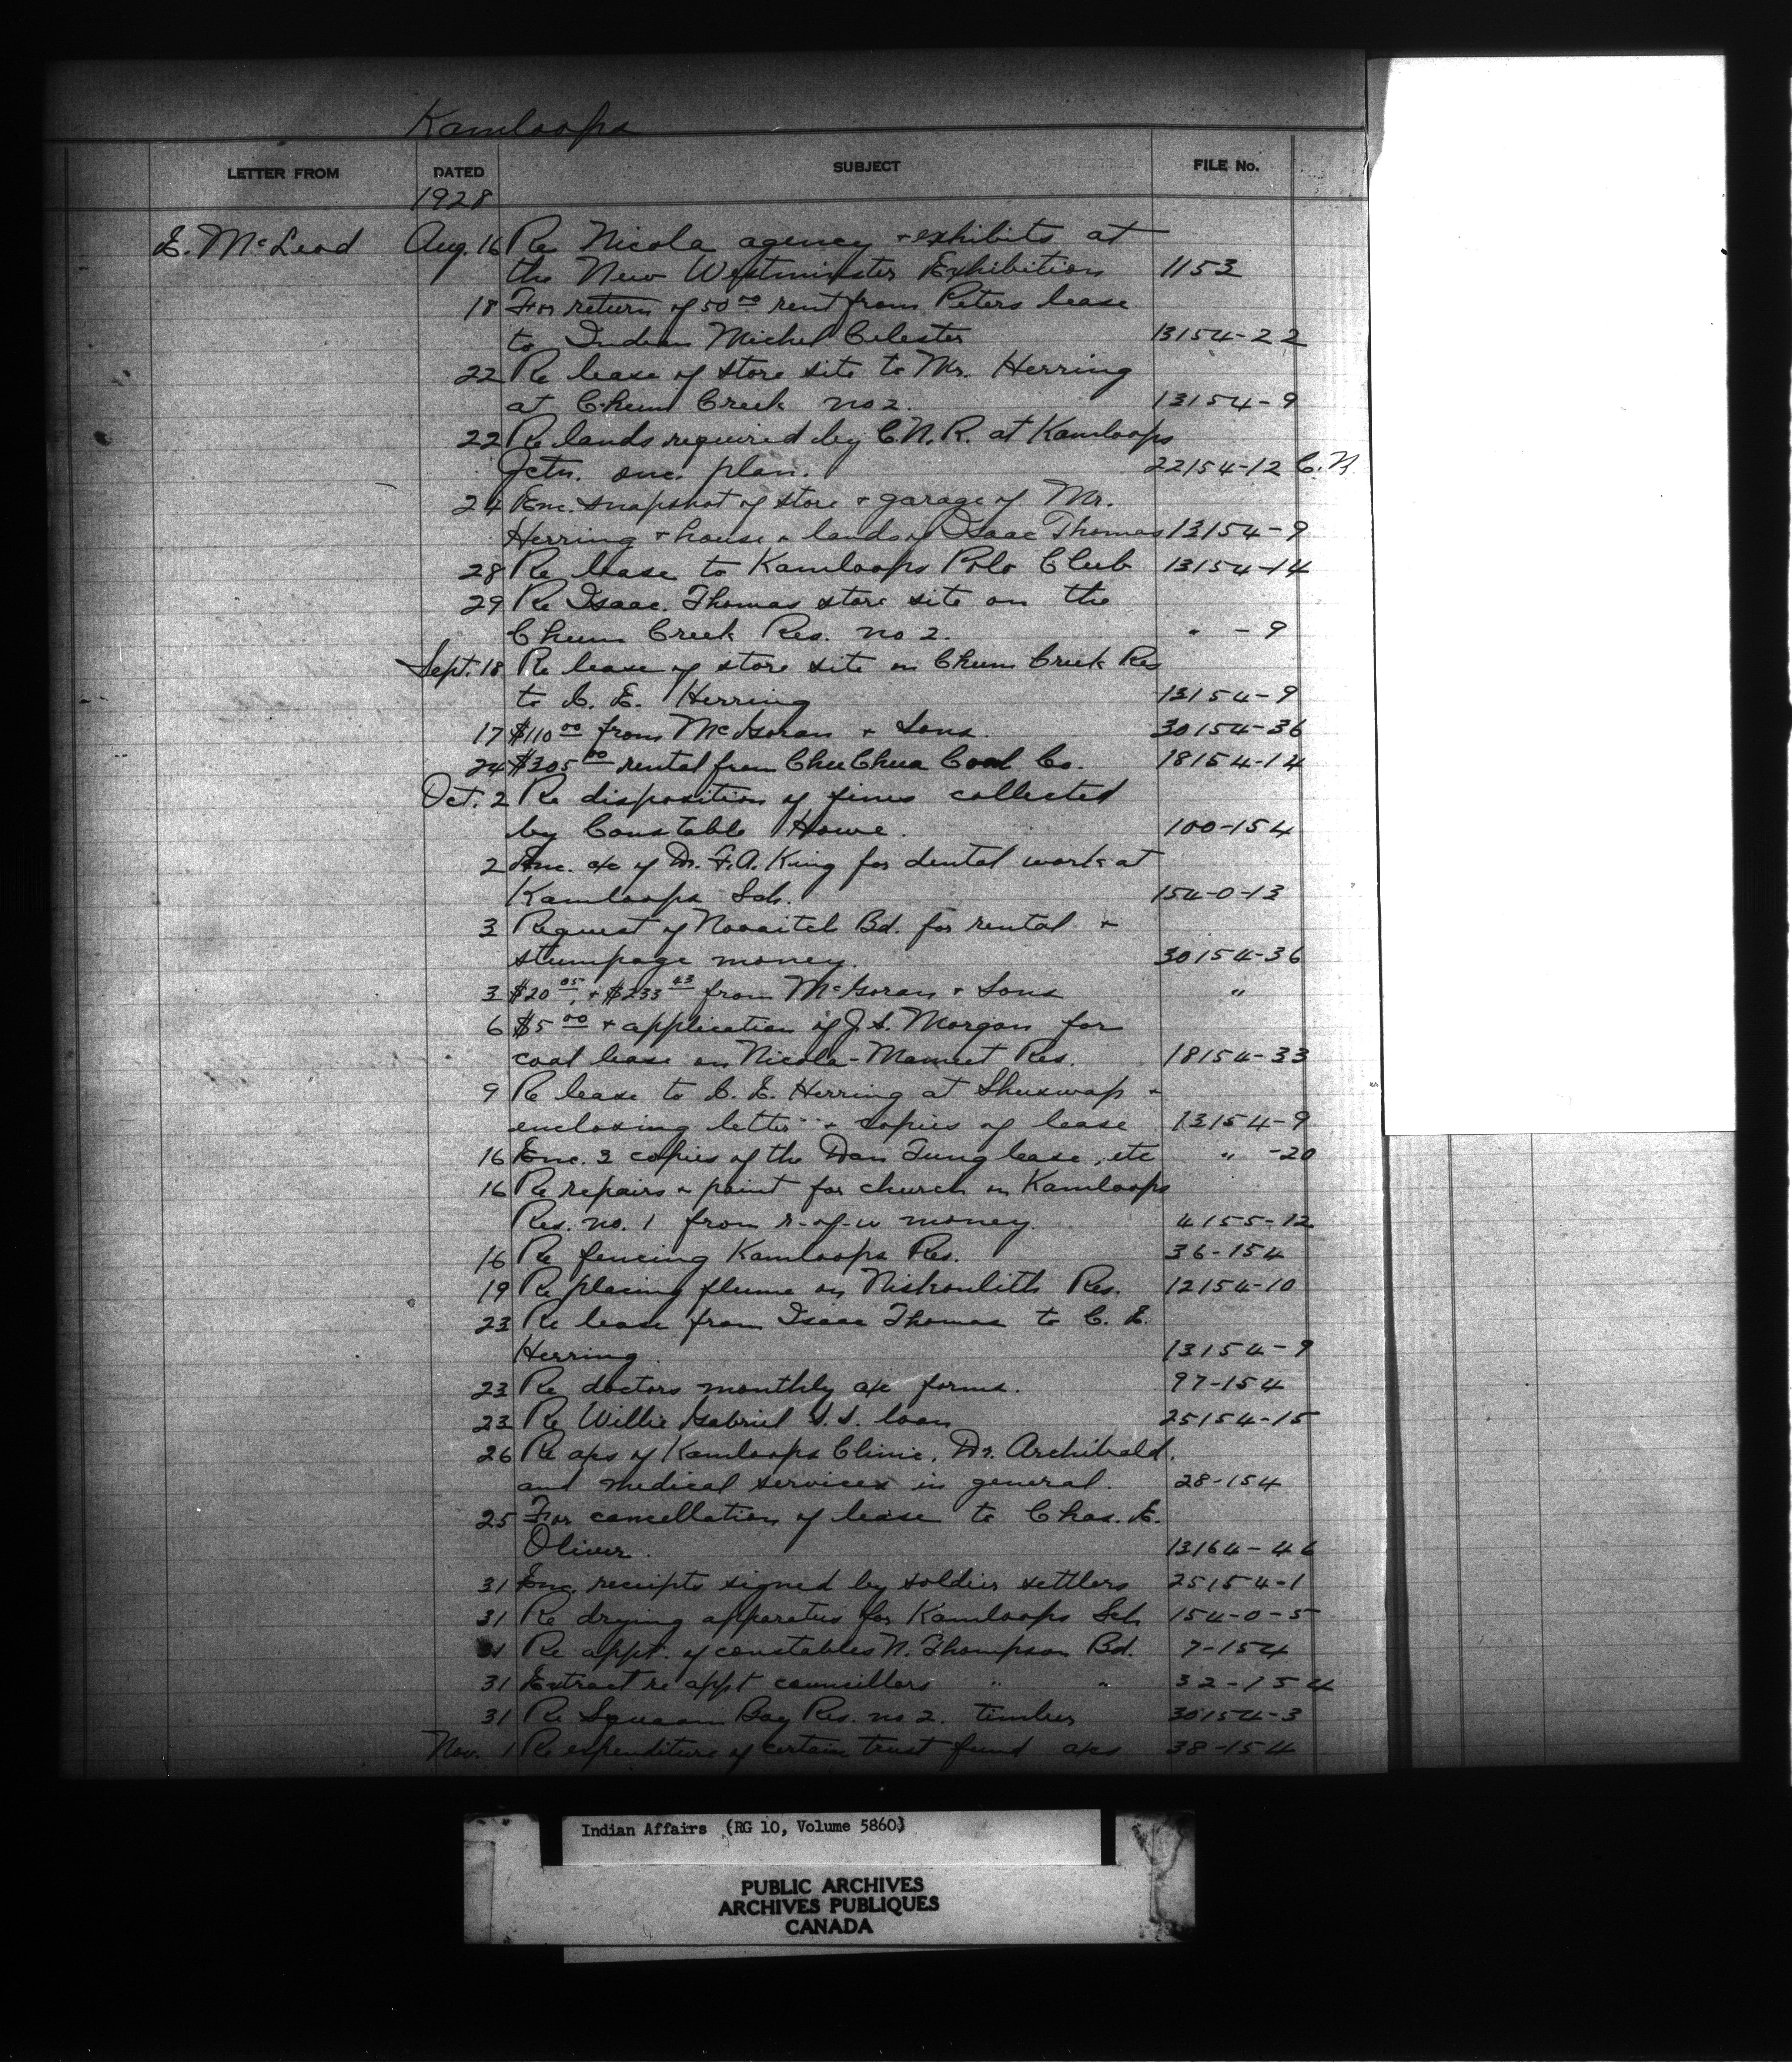 Kamloops
LETTER FROM DATED SUBJECT FILE No.
1928
E. McLeod Aug. 16 Re Nicola agency + exhibits at
the New Westminster Exhibition 1153
18 For return of 50 00 rent from Peters lease
to Indian Michel Celester 13154-22
22 Re lease of store site to Mr. Herring
at Chum Creek no 2. 13154-9
22 Re lands required by C.N.R. at Kamloops
Jctn. enc. plan. 22154-12 C.N
24 Enc. snapshot of store + garage of Mr.
Herring + house + lands of Isaac Thomas 13154-9
28 Re lease to Kamloops Polo Club 13154-14
29 Re Isaac Thomas store site on the
Chum Creek Res. no 2. " -9
Sept. 18 Re lease of store site on Chum Creek Res
to C. E. Herring 13154-9
17 $110 00 from McGoran + Sons. 30154-36
24 $305 00 rental from Chu Chua Coal Co. 18154-14
Oct. 2 Re disposition of fines collected
by Constable Howe. 100-154
2 Enc. a/c of Dr. F.A. King for dental work at
Kamloops Sch. 154-0-13
3 Request of Nooaitch Bd. for rental +
stumpage money. 30154-36
3 $20 05 + $233 43 from McGoran + Sons "
6 $5 00 + application of J.S. Morgan for
coal lease on Nicola-Mameet Res. 18154-33
9 Re lease to C. E. Herring at Shuswap +
enclosing letter + copies of lease 13154-9
16 Enc. 2 copies of the Dan Tung lease, etc " -20
16 Re repairs + paint for church on Kamloops
Res. no. 1 from r-of-w money. 4155-12
16 Re fencing Kamloops Res. 36-154
19 Re placing flume on Niskonlith Res. 12154-10
23 Re lease from Isaac Thomas to C. E.
Herring. 13154-9
23 Re doctors monthly a/c forms. 97-154
23 Re Willie Gabriel S.S. loan 25154-15
26 Re a/cs of Kamloops Clinic, Dr. Archibald,
and medical services in general. 28-154
25 For cancellation of lease to Chas. E.
Oliver. 13164-46
31 Enc. receipts signed by soldier settlers 25154-1
31 Re drying apparatus for Kamloops Sch 154-0-5
31 Re appt. of constables N. Thompson Bd. 7-154
31 Extract re appt councillors " " 32-154
31 Re Squaam Bay Res. no 2. timber 30154-3
Nov. 1 Re expenditure of certain trust fund a/cs 38-154
Indian Affairs (RG 10, Volume 5860)
PUBLIC ARCHIVES
ARCHIVES PUBLIQUES
CANADA